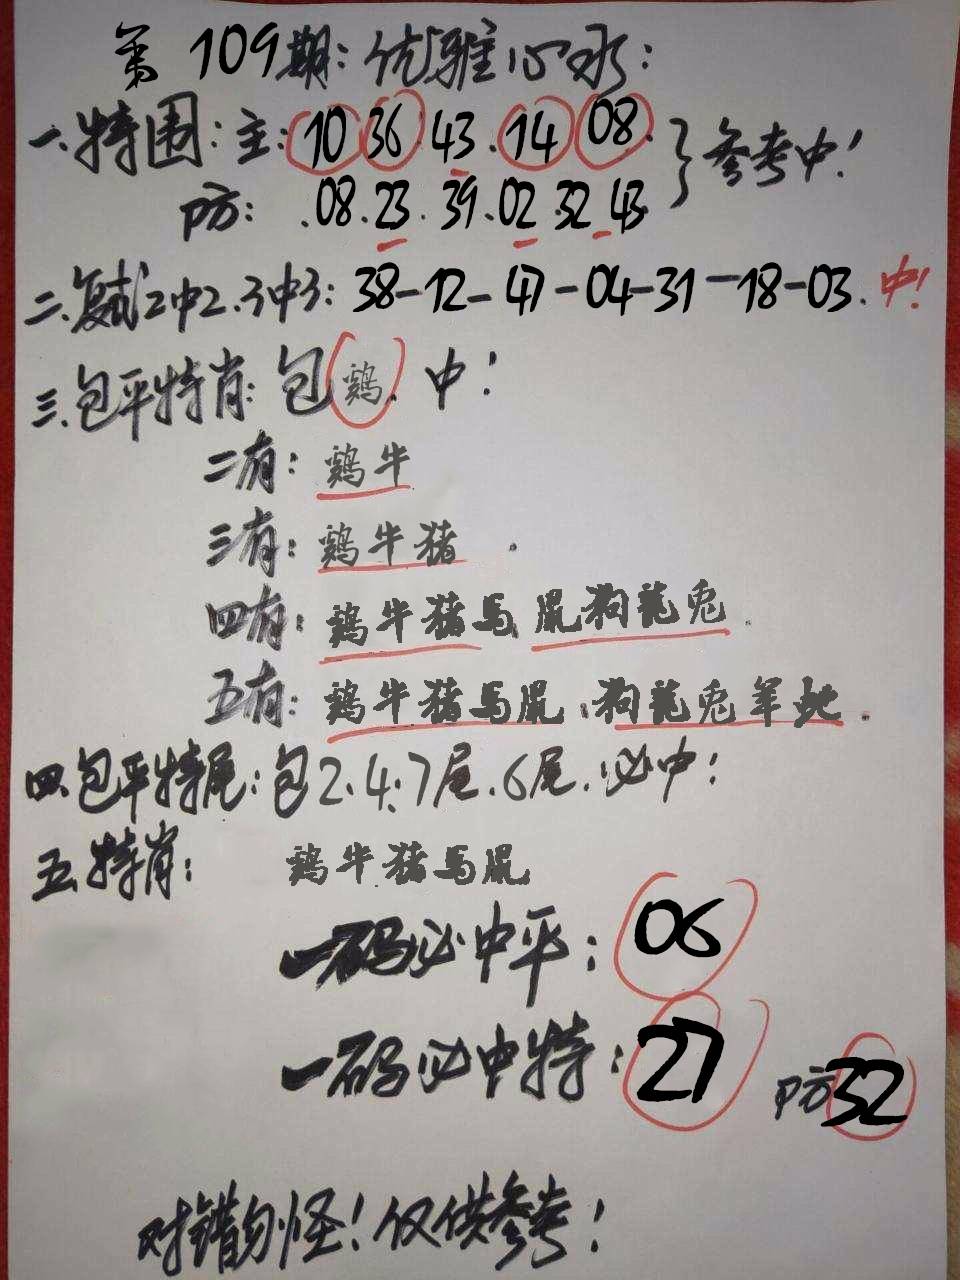 第109期：优雅心水：
一、特围：主：10 36. 43. 14 08.
防：.08.23.39.02.32.43.
参考中！
二、复式2中2.3中3：38-12-47-04-31-18-03.中！
三、包平特肖：包鸡.中！
二有：鸡牛
三有：鸡牛猪.
四有：鸡牛猪马、鼠狗龍兔.
五有：鸡牛猪马鼠.狗龍兔羊蛇.
四.包平特尾：包2.4.7尾.6尾.必中！
五.特肖：鸡牛猪马鼠
一码必中平：06
一码必中特：27 防32
对错勿怪！仅供参考！